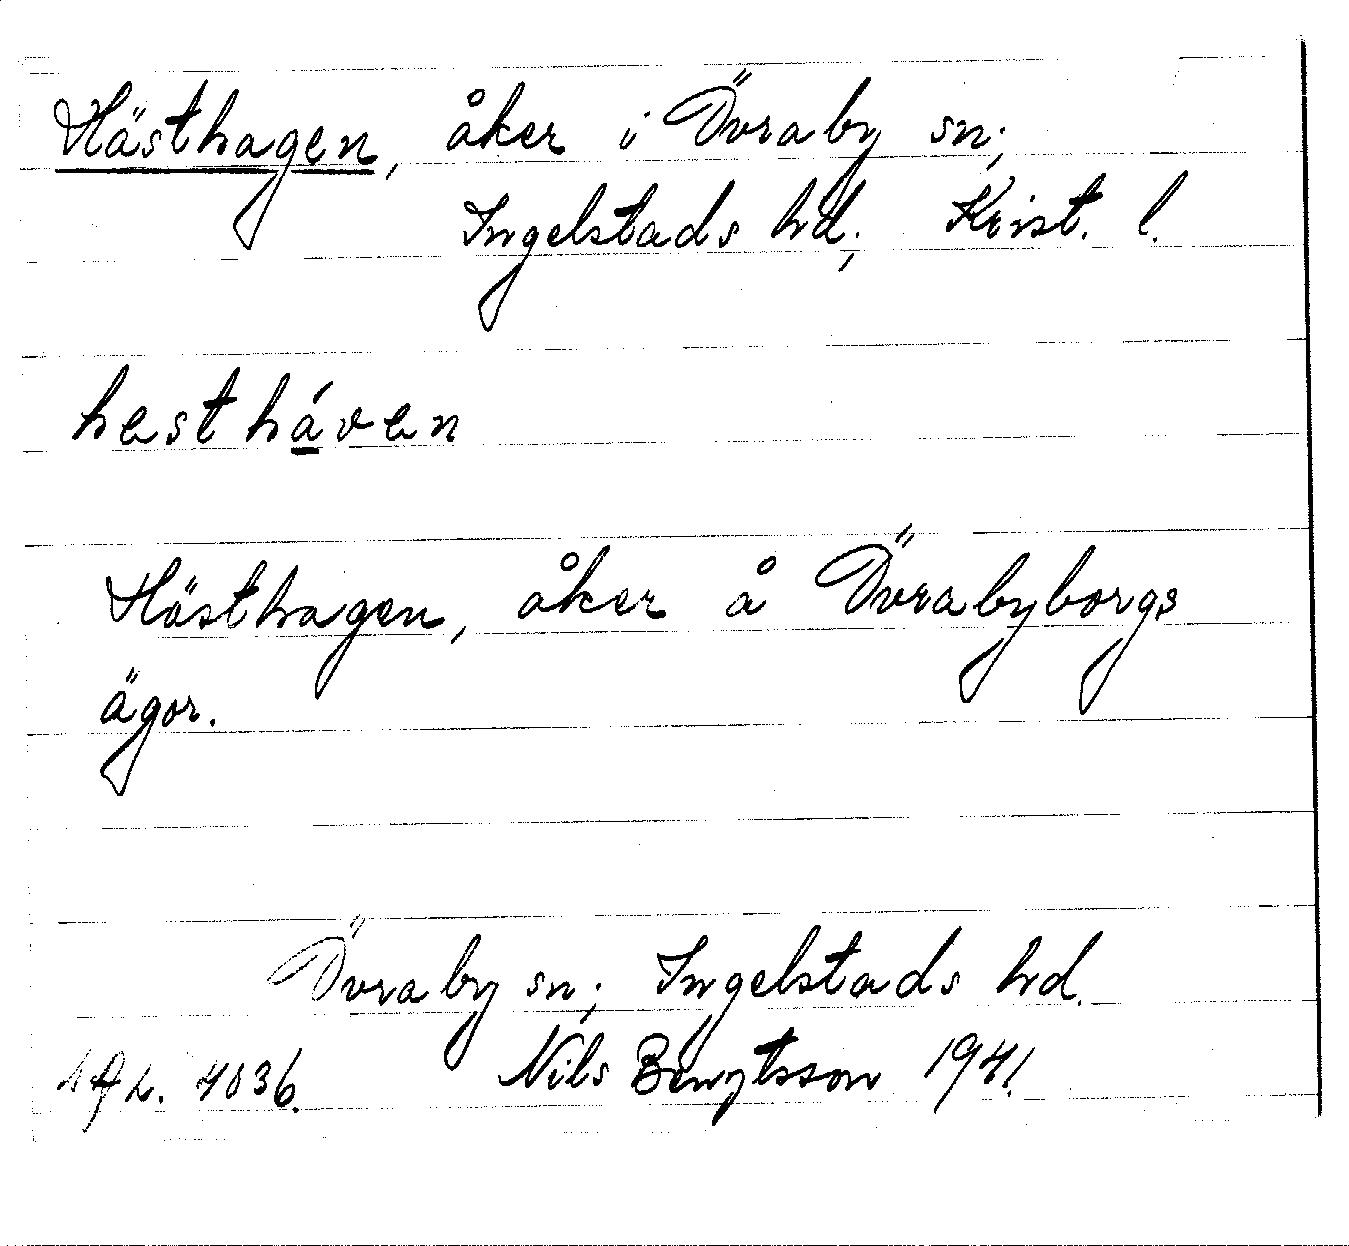 Hästhagen, åker i Övraby sn;
Ingelstads hd; Krist. l.
hestháven
Hästhagen, åker å Övrabyborgs
ägor.
Övraby sn; Ingelstads hd.
4036. Nils Bengtsson 1941.